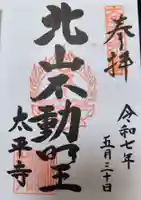 奉拝
令和七年
五月三十日
北山不動明王
太平寺